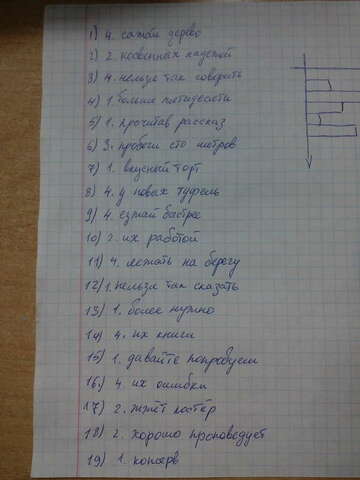 1) 4. сажай дерево
2) 2. косвенных падежей
3) 4. нельзя так говорить
4) 1 больше пятидесяти
5) 1. прочитав рассказ
6) 3. пробеги сто метров
7) 1. вкусный торт
8) 4. у новых туфель
9) 4. езжай быстрее
10) 2. их работой
11) 4. лежать на берегу
12) 1. нельзя так сказать
13) 1. более нужно
14) 4. их книги
15) 1. давайте попробуем
16) 4. их ошибки
17) 2. жжёт костёр
18) 2. хорошо проповедует
19) 1. консерв